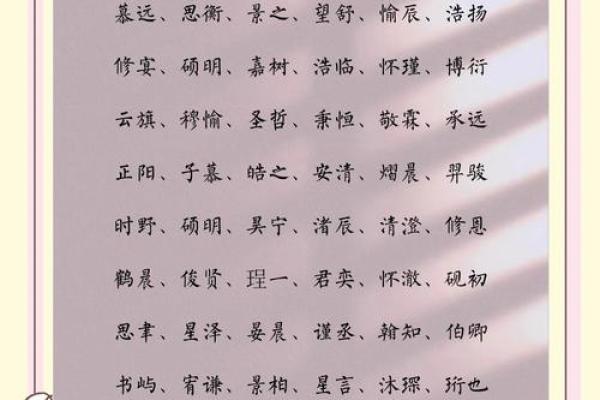 慕远、思衡、景之、望舒、愉辰、浩扬
修宴、硕明、嘉树、浩临、怀瑾、博衍
云旗、穆愉、圣哲、秉恒、敬霖、承远
正阳、子慕、皓之、安清、熠晨、羿骏
时野、硕明、昊宁、渚辰、清澄、修恩
鹤晨、俊贤、珵一、君奕、怀澈、砚初
思聿、星泽、晏晨、谨丞、翰知、伯卿
书屿、宥谦、景柏、星言、沐琛、珩也